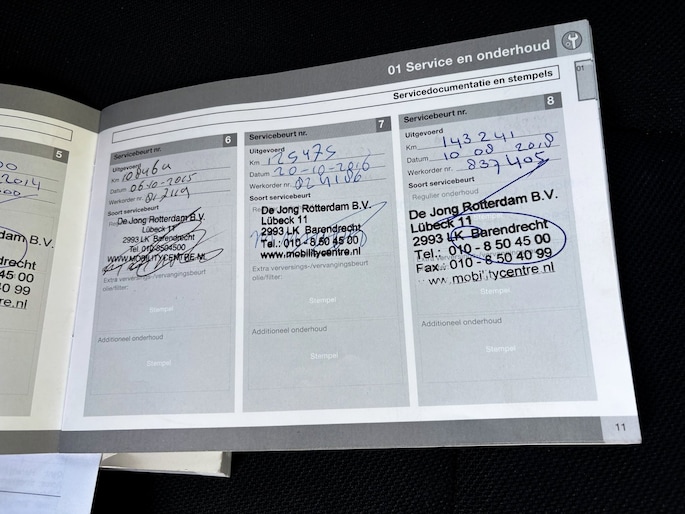 01 Service en onderhoud
Servicedocumentatie en stempels
01
5
2014
dam B.V.
drecht
45 00
40 99
tre.nl
Servicebeurt nr. 6
Uitgevoerd
Km
Datum 06-10-2015
Werkorder nr.
Soort servicebeurt
De Jong Rotterdam B.V.
Lübeck 11
2993 LK Barendrecht
Tel. 010-8504500
WWW.MOBILITYCENTRE.NL
Extra verversings-/vervangingsbeurt
olie/filter:
Stempel
Additioneel onderhoud
Stempel
Servicebeurt nr. 7
Uitgevoerd
Km 125475
Datum 20-10-2016
Werkorder nr. 824186
Soort servicebeurt
De Jong Rotterdam B.V.
Lübeck 11
2993 LK Barendrecht
Tel.: 010 - 8 50 45 00
www.mobilitycentre.nl
Extra verversings-/vervangingsbeurt
olie/filter:
Stempel
Additioneel onderhoud
Stempel
Servicebeurt nr. 8
Uitgevoerd
Km 143241
Datum 10 08 2018
Werkorder nr. 837405
Soort servicebeurt
Regulier onderhoud
De Jong Rotterdam B.V.
Lübeck 11
2993 LK Barendrecht
Tel.: 010 - 8 50 45 00
Fax.: 010 - 8 50 40 99
www.mobilitycentre.nl
olie/filter:
Stempel
Additioneel onderhoud
Stempel
11